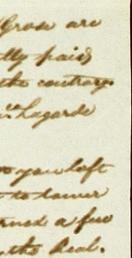 Grose are
lly paid
the contrary.
Lagarde
you left
to tower
rned a few
the Real.